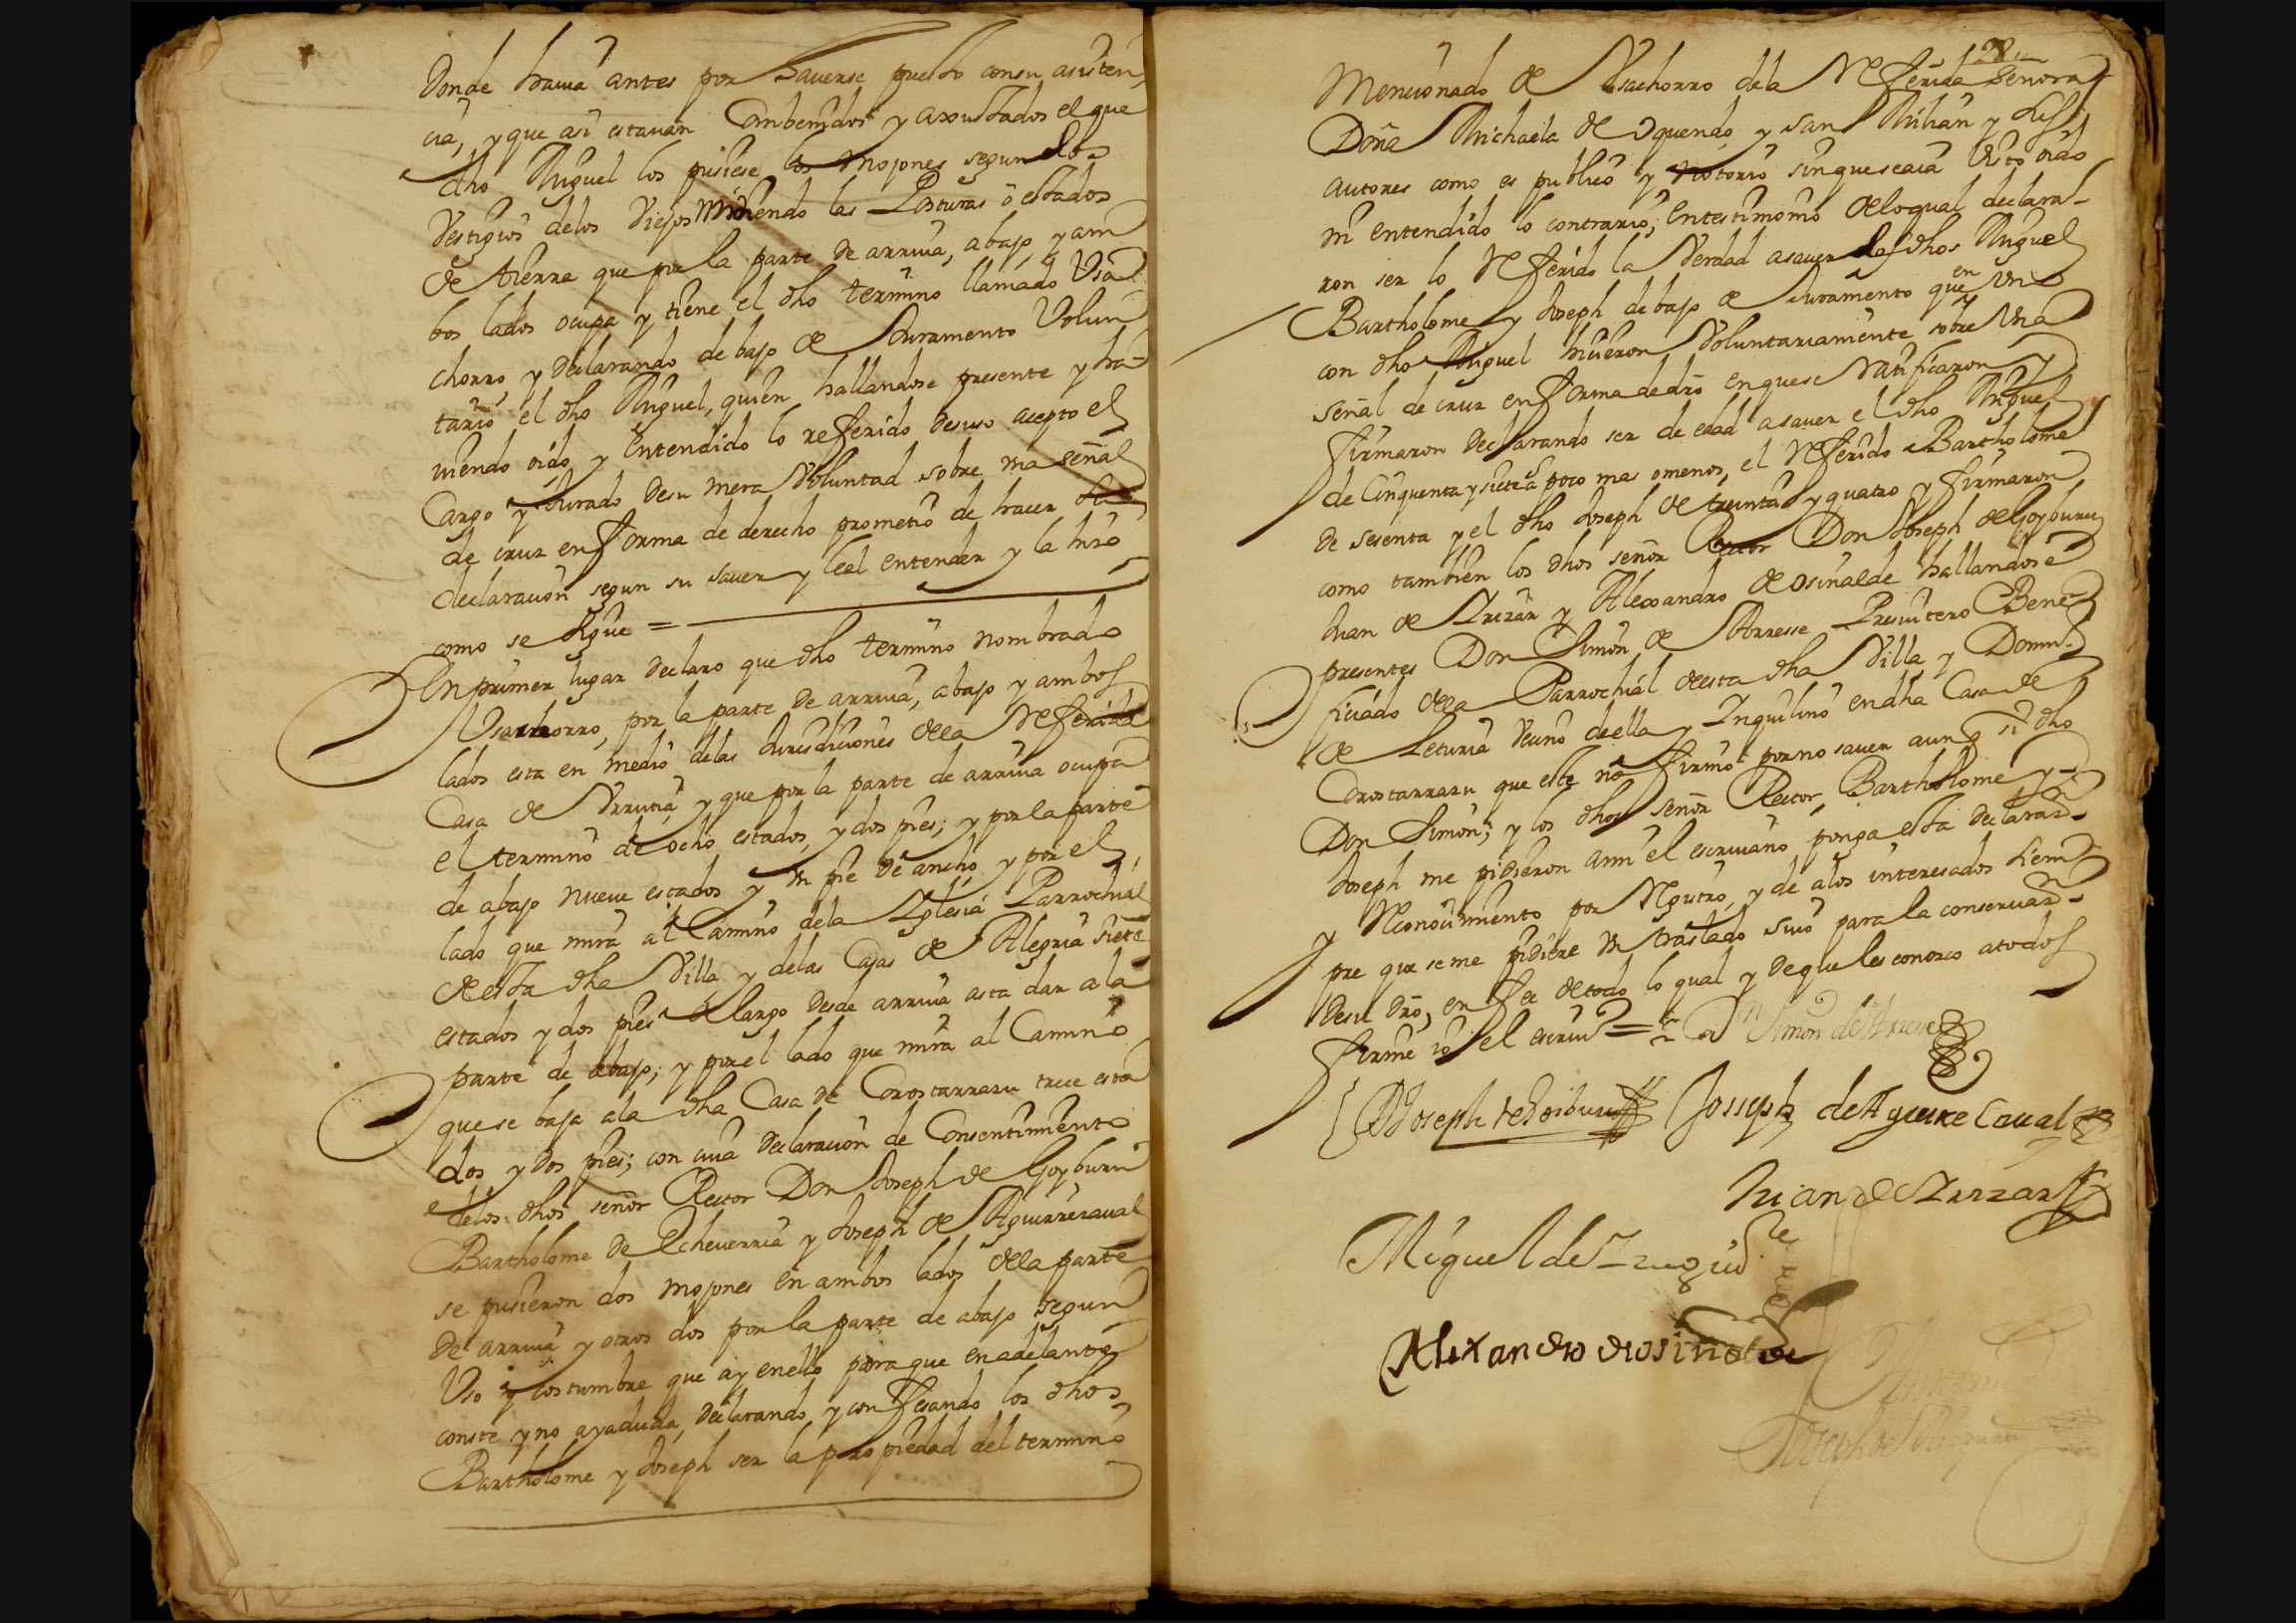 Donde havia antes por haverse puesto con su asisten
cia, y que asi estavan Combenidos y axustados el que
dho Miguel los pusiese los Mojones segun los
Vestigios delos Viejos Midiendo las Posturas ō estados
de tierra que por la parte de arriva, abajo, y am
bos lados ocupa y tiene el dho termino llamado Vsa
chorro, y declarando debajo de Juramento Volun
tario el dho Miguel, quien hallandose presente y ha
viendo oido, y entendido lo referido desuso acepto el
Cargo y Jurado de su mera Voluntad sobre vna señal
de cruz en forma de derecho prometio de hacer la
declaracion segun su saver y leal entender y la hizo
como se sigue =
En primer lugar declaro que dho termino nombrado
Vsachorro, por la parte de arriva, abajo y ambos
lados esta en medio delas Jurisdiciones dela Referida
Casa de Vrrutia, y que por la parte de arriva ocupa
el termino de ocho estados, y dos pies; y por la parte
de abajo nueve estados y vn pie de ancho, y por el
lado que mira al Camino dela Yglesia Parrochial
de esta dha Villa y delas Casas de Alegria siete
estados y dos pies de largo desde arriva asta dar ala
parte de abajo; y por el lado que mira al Camino
que se baja ala dha Casa de Corostarraru trece esta
dos y dos pies; con cuia declaracion de Consentimiento
delos dhos señor Rector Don Joseph de Goyburu
Bartholome de Echeverria y Joseph de Aguirrezaval
se pusieron dos mojones en ambos lados dela parte
de arriva y otros dos por la parte de abajo segun
Vso y costumbre que ay enello para que en adelante
conste y no aya duda, declarando, y confesando los dhos
Bartholome y Joseph ser la propiedad del termino
28
Mencionado de Vsachorro dela Referida Señora
Doña Michaela de Oquendo, y san Milian y sus
autores como es publico y Notorio sin que se aia Visto oido
ni entendido lo contrario; en testimonio delo qual declara
ron ser lo Referido la Verdad a saver los dhos Miguel
Bartholome y Joseph debajo de Juramento que en vno
con dho Miguel hicieron Voluntariamente sobre vna
señal de cruz en forma de dro en que se ratificaron y
firmaron declarando ser de edad a saver el dho Miguel
de Cinquenta y siete ā poco mas o menos, el Referido Bartholome
de sesenta y el dho Joseph de treinta y quatro y firmaron
como tambien los dhos señor Rector Don Joseph de Goyburu
Juan de Yrizar y Alexandro de Osinalde hallandose
presentes Don Simon de Arrese Presvitero Bene
ficiado dela Parrochial de esta dha Villa y Domin.
de Leturia Vecino de ella y Inquilino en dha Casa de
Corostarraru que este no firmo por no saver aunq si dho
Don Simon; y los dhos señor Rector, Bartholome y
Joseph me pidieron ami el escrivano ponga esta declaraz.
y Reconocimiento por Registro, y de alos interesados siem
pre que se me pidiere vn traslado suio para la conservaz.
de su dro, en fee de todo lo qual y de que les conozco atodos
firme io el escrivo = Dn Simon de Arrese
D Joseph de Goiburu Josseph de Aguirre Caual
Juan de Yrizar
Miguel de
Alexandro de osinalde
Joseph de